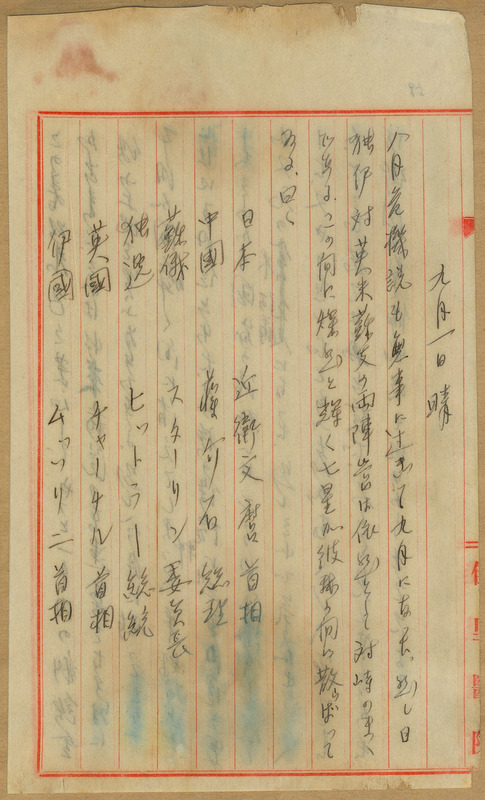 九月一日 晴
八月危機説も無事に過ぎて九月になった。然し日
独伊対英米蘇支の両陣営は依然として対峙のまゝ
である。この間に燦然と輝く七星が彼我の間に散らばって
ゐる、曰く
日本 近衛文麿 首相
中國 蒋介石 総理
蘇俄 スターリン 委員長
独逸 ヒットラー 総統
英國 チャーチル 首相
伊國 ムッソリニ 首相